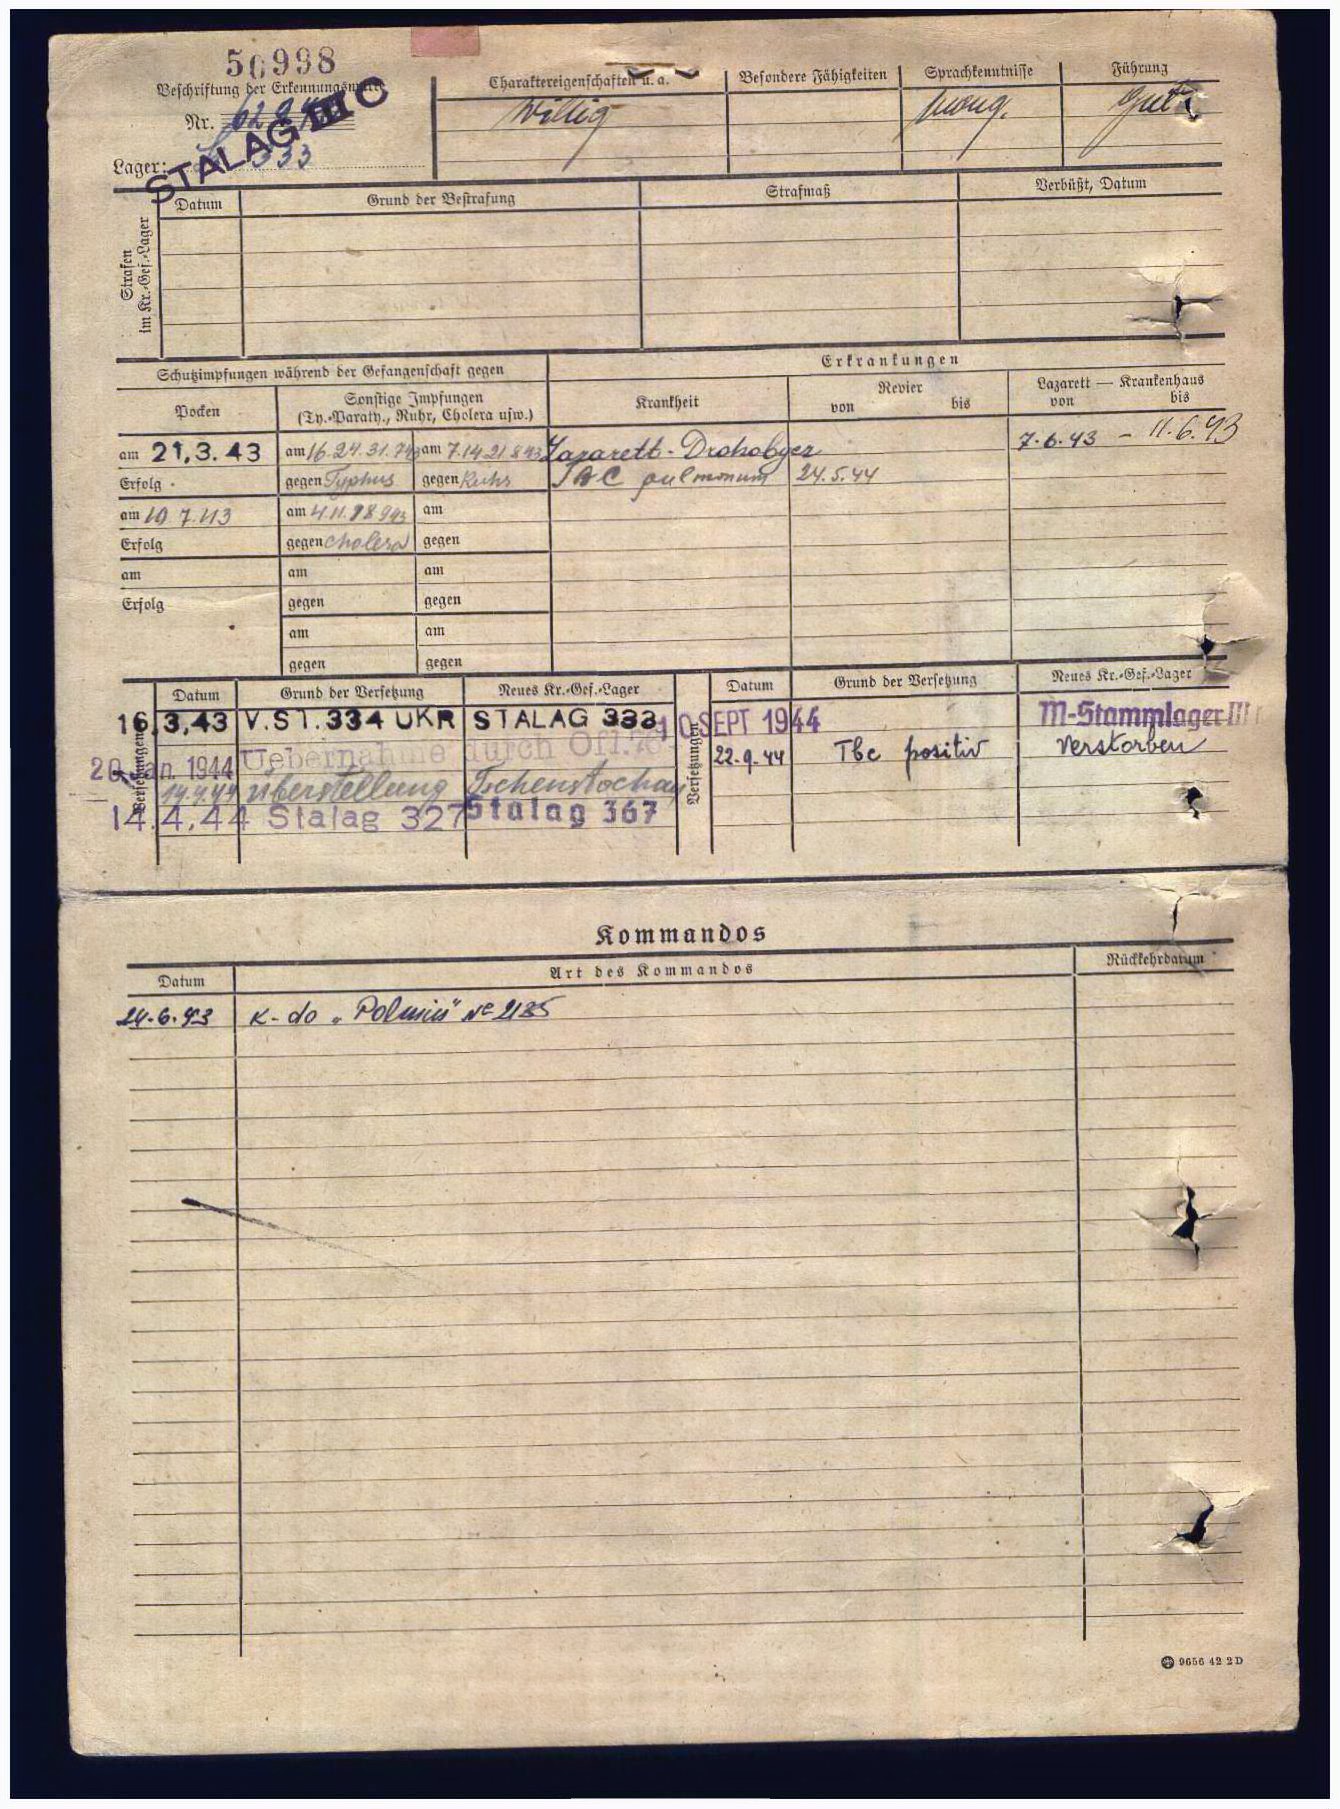 50998
Beschriftung der Erkennungsmarke
Charaktereigenschaften u. a.
Besondere Fähigkeiten
Sprachkenntnisse
Führung
Nr.
STALAG III C
willig
gut
Lager: 333
Strafen im Kr.-Gef.-Lager
Datum
Grund der Bestrafung
Strafmaß
Verbüßt, Datum
Schutzimpfungen während der Gefangenschaft gegen
Erkrankungen
Pocken
Sonstige Impfungen
(Ty.-Paraty., Ruhr, Cholera usw.)
Krankheit
Revier
von bis
Lazarett — Krankenhaus
von bis
am 21.3.43
am 16.24.31.7.43
am 7.14.21.8.43
Lazarett-Drohobycz
7.6.43 – 11.6.43
Erfolg
gegen Typhus
gegen Ruhr
TBC pulmonum
24.5.44
am 10.7.43
am 4.11.18.9.43
am
Erfolg
gegen cholera
gegen
am
am
am
Erfolg
gegen
gegen
am
am
gegen
gegen
Versetzungen
Datum
Grund der Versetzung
Neues Kr.-Gef.-Lager
Versetzungen
Datum
Grund der Versetzung
Neues Kr.-Gef.-Lager
16.3.43 V.ST. 334 UKR STALAG 333
10. SEPT 1944
M-Stammlager III
20. Jan. 1944 Uebernahme durch Ofl. 76
22.9.44 Tbc positiv verstorben
14.4.44 überstellung Tschenstochau
14.4.44 Stalag 327 Stalag 367
Kommandos
Datum
Art des Kommandos
Rückkehrdatum
24.6.43 K-do „Polmin“ № 2185
9656 42 2 D